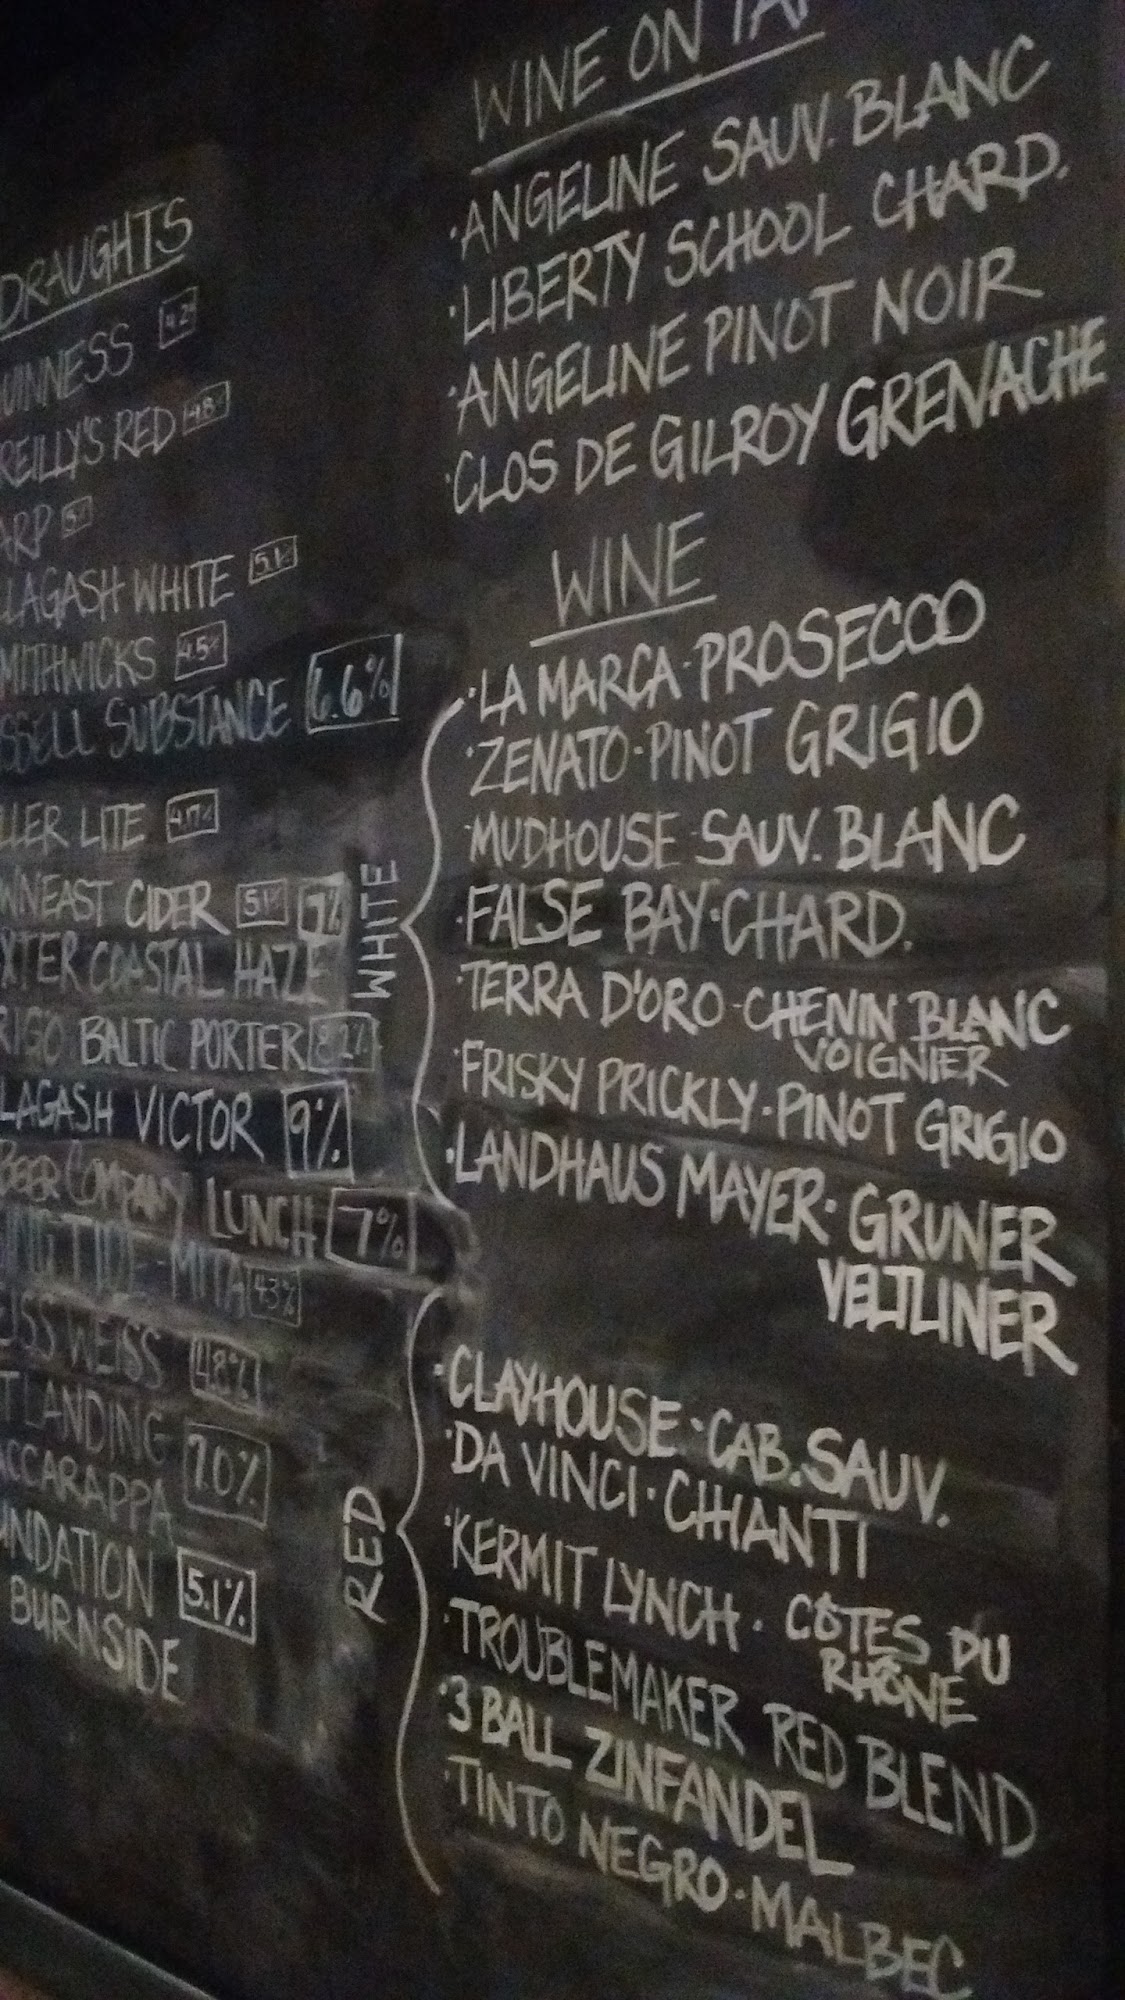 DRAUGHTS
UINNESS 4.2%
REILLY'S RED 4.8%
ARP 5%
LLAGASH WHITE 5.1%
MITHWICKS 4.5%
SSELL SUBSTANCE 6.6%
LLER LITE 4.17%
WNEAST CIDER 5.1% 7%
XTER COASTAL HAZE
RIGO BALTIC PORTER 8.2%
LLAGASH VICTOR 9%
BEER COMPANY LUNCH 7%
ING TIDE - MITA 4.3%
USS WEISS 4.8%
T LANDING 7.0%
ACCARAPPA
UNDATION 5.1%
BURNSIDE
WINE ON TAP
·ANGELINE SAUV. BLANC
·LIBERTY SCHOOL CHARD.
·ANGELINE PINOT NOIR
·CLOS DE GILROY GRENACHE
WINE
WHITE
·LA MARCA·PROSECCO
·ZENATO·PINOT GRIGIO
·MUDHOUSE·SAUV. BLANC
·FALSE BAY·CHARD.
·TERRA D'ORO-CHENIN BLANC
VOIGNIER
·FRISKY PRICKLY·PINOT GRIGIO
·LANDHAUS MAYER·GRUNER
VELTLINER
RED
·CLAYHOUSE·CAB. SAUV.
·DA VINCI·CHIANTI
·KERMIT LYNCH·CÔTES DU
RHÔNE
·TROUBLEMAKER RED BLEND
·3 BALL ZINFANDEL
·TINTO NEGRO·MALBEC